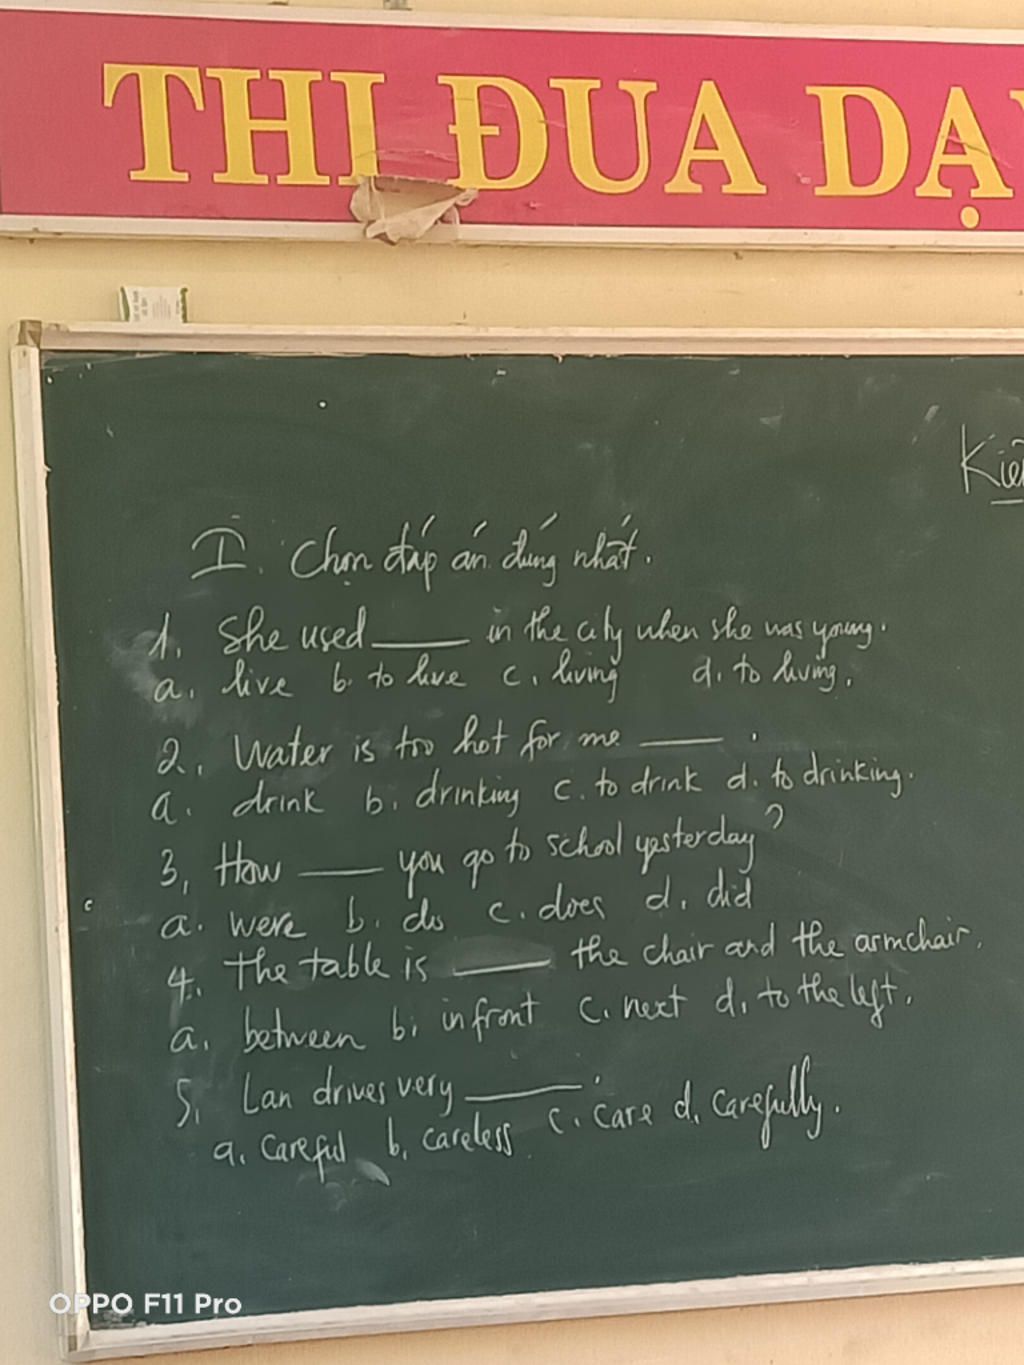 THI ĐUA DẠY
Kiể
I. Chọn đáp án đúng nhất.
1. She used ____ in the city when she was young.
a. live b. to live c. living d. to living.
2. Water is too hot for me ____.
a. drink b. drinking c. to drink d. to drinking.
3, How ____ you go to school yesterday?
a. were b. do c. does d. did
4. The table is ____ the chair and the armchair.
a. between b. in front c. next d. to the left.
5. Lan drives very ____.
a. careful b. careless c. care d. carefully.
OPPO F11 Pro